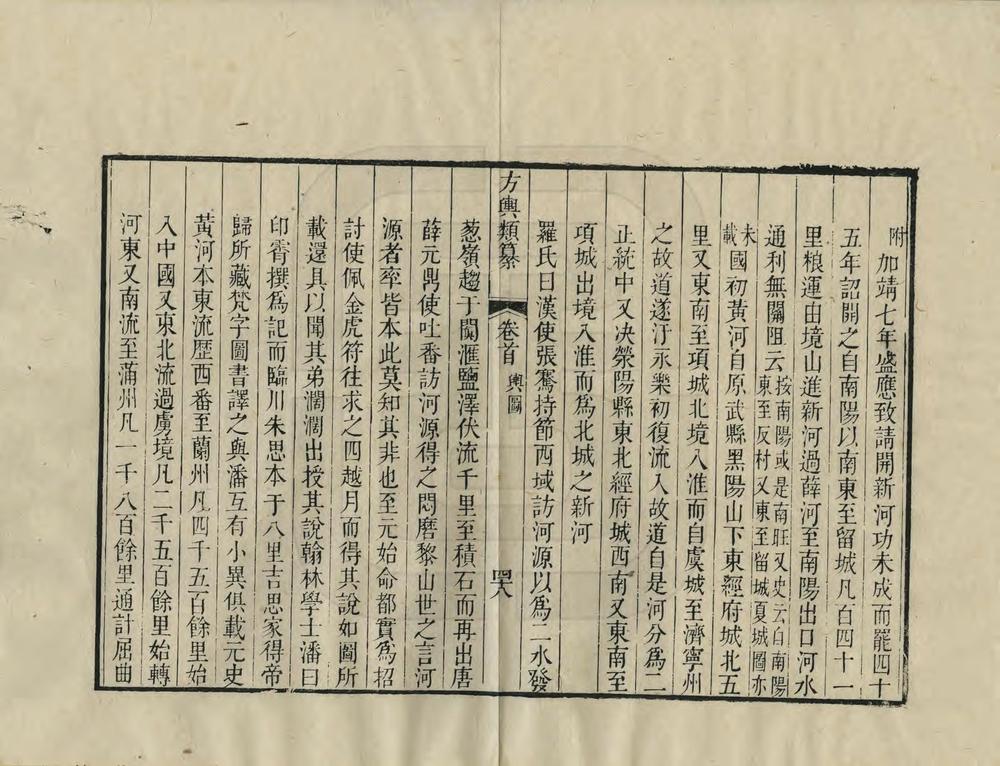 附
加靖七年盛應致請開新河功未成而罷四十
五年詔開之自南陽以南東至留城凡百四十一
里粮運由境山進新河過薛河至南陽出口河水
通利無閼阻云按南陽或是南旺又史云自南陽東至反村又東至留城夏城圖亦
未載國初黃河自原武縣黑陽山下東經府城北五
里又東南至項城北境入淮而自虞城至濟寧州
之故道遂汙永樂初復流入故道自是河分爲二
正統中又决滎陽縣東北經府城西南又東南至
項城出境入淮而爲北城之新河
羅氏曰漢使張騫持節西域訪河源以爲二水發
方輿類纂 卷首 輿圖 四八
葱嶺趨于闐滙鹽澤伏流千里至積石而再出唐
薛元鼎使吐番訪河源得之悶磨黎山世之言河
源者率皆本此莫知其非也至元始命都實爲招
討使佩金虎符往求之四越月而得其說如圖所
載還具以聞其弟濶濶出授其說翰林學士潘曰
印霄撰爲記而臨川朱思本于八里吉思家得帝
歸所藏梵字圖書譯之與潘互有小異俱載元史
黃河本東流歷西番至蘭州凡四千五百餘里始
入中國又東北流過虜境凡二千五百餘里始轉
河東又南流至蒲州凡一千八百餘里通計屈曲